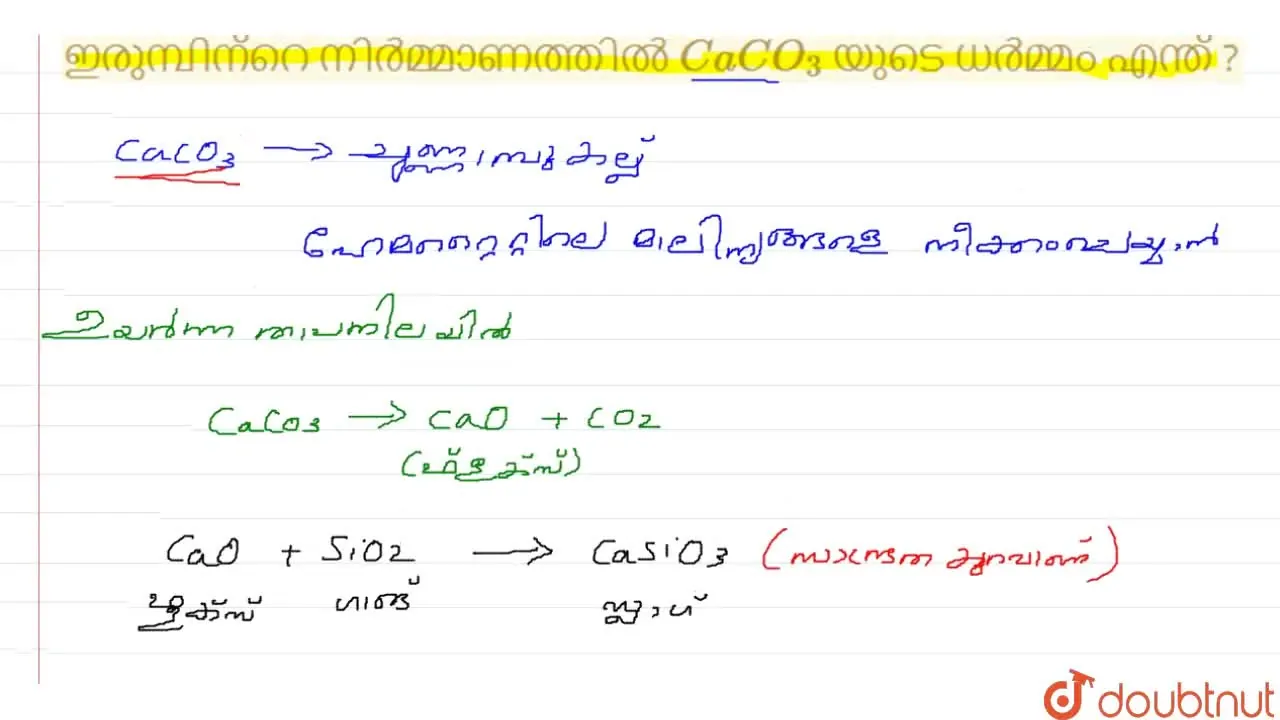 ഇരുമ്പിന്റെ നിർമ്മാണത്തിൽ CaCO₃ യുടെ ധർമ്മം എന്ത് ?
CaCO₃ → ചുണ്ണാമ്പുകല്ല്
ഹേമറ്റൈറ്റിലെ മാലിന്യങ്ങളെ നീക്കംചെയ്യാൻ
ഉയർന്ന താപനിലയിൽ
CaCO3 → CaO + CO2
(ഫ്ളക്സ്)
CaO + SiO2 → CaSiO3 (സാന്ദ്രത കുറവാണ്)
ഫ്ളക്സ് ഗാങ് സ്ലാഗ്
doubtnut